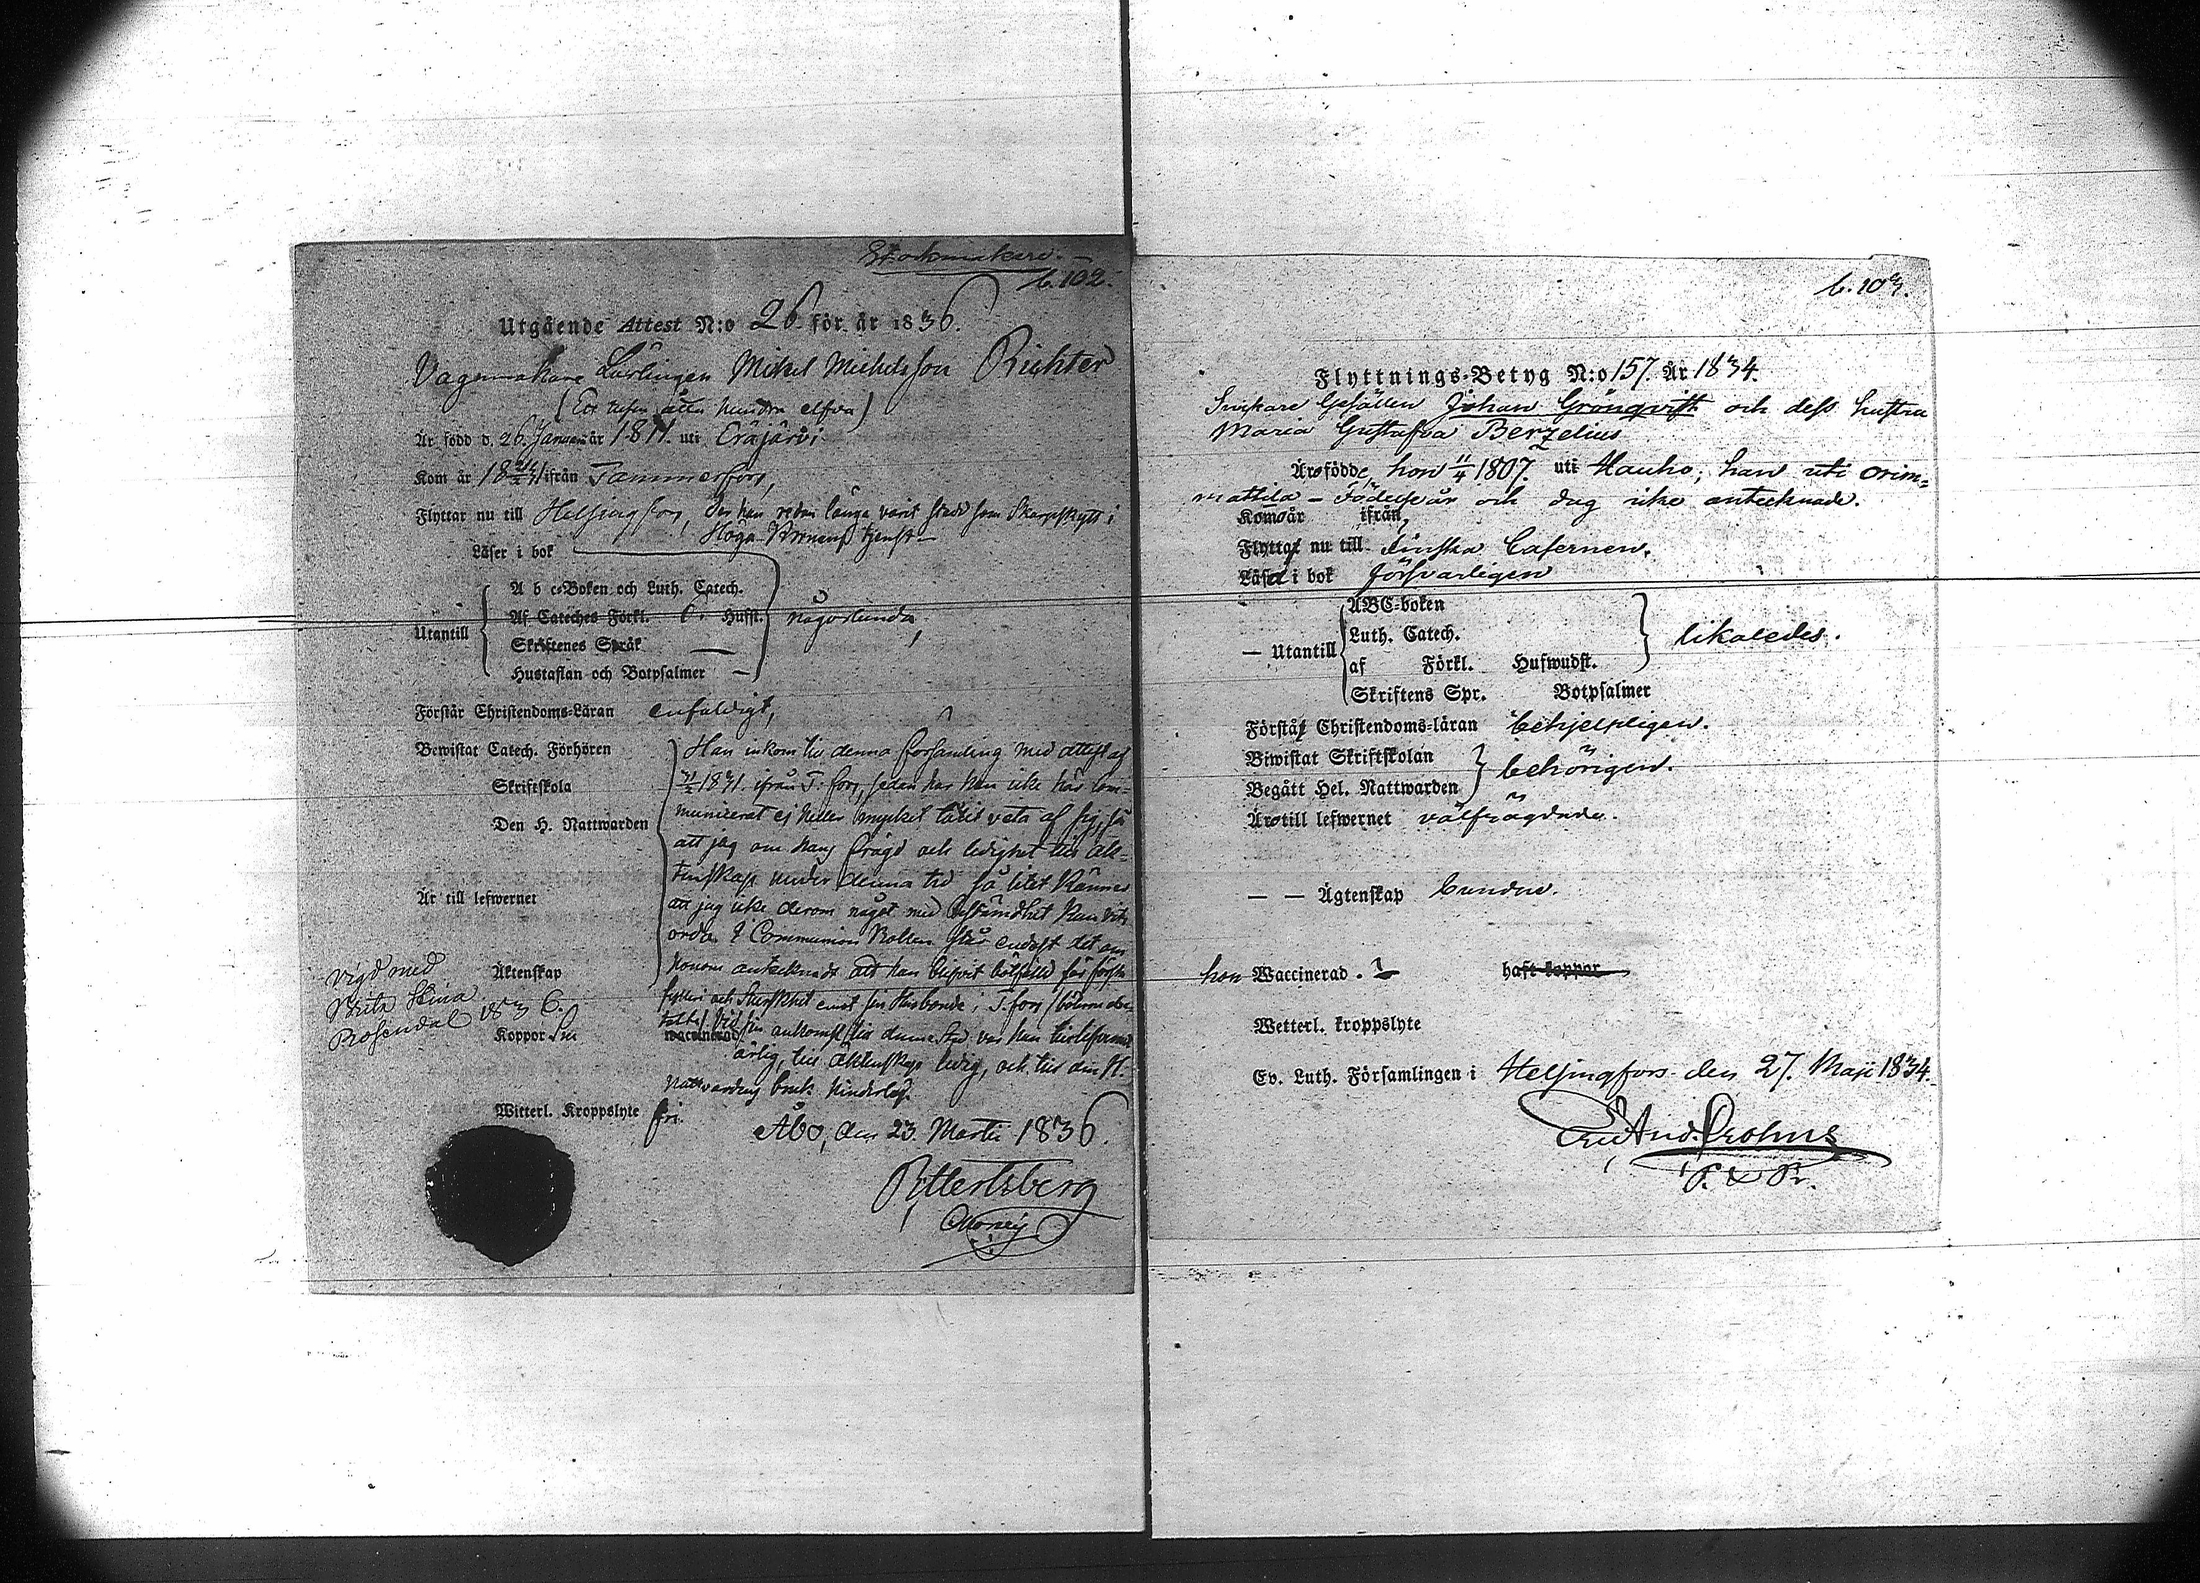 Stockmakare. —
b. 102.
Utgående Attest N:o 26 för år 1836.
Vagnmakare Lärlingen Mikel Michelsson Richter
(Ett tusen åtta hundra elfva)
Är född d. 26 Januari år 1811. uti Eräjärvi
Kom år 1831 ifrån Tammerfors,
Flyttar nu till Helsingfors, der han redan länge varit stadd som Skarpskytt i
Höga Kronans tjenst —
Läser i bok
A b c-Boken och Luth. Catech.
Af Cateches Förkl. 6. Hufst.
någorlunda,
Utantill
Skriftenes Språk —
Hustaflan och Botpsalmer —
Förstår Christendoms-Läran enfaldigt,
Bewistat Catech. Förhören
Han inkom till denna församling med attest af
Skriftskola
1831. ifrån T:fors, sedan har han icke här com-
Den H. Nattwarden
municerat ej heller mycket låtit veta af sig, så
att jag om hans frägd och ledighet till äk-
tenskap under denna tid så litet känner
Är till lefwernet
att jag icke derom något med bestämdhet kan vits
orda. I Communion Boken står endast det om
Äktenskap
honom antecknadt att han blifvit bötfälld för första
fylleri och emot sin Husbonde i T.fors
vid sin ankomst till denna stad var han till lefvernet
ärlig, till äktenskap ledig, och till din H.
Nattvardens bruk hinderlös.
vigd med
Brita Stina
Rosendal 1836.
Koppor
waccinerad
Witterl. Kroppslyte fri.
Åbo, den 23. Martii 1836.
b. 103.
Flyttnings-Betyg N:o 157. År 1834.
Snickare Gesällen Johan Grönqvist och dess hustru
Maria Gustafva Berzelius
Äro födde, hon 11/4 1807. uti Hauho; han uti Orim-
mattila — Födelseår och dag icke antecknade.
Kom år ifrån,
Flytta nu till Finska Casernen.
Läsa i bok försvarligen
ABC-boken
Luth. Catech.
— Utantill
likaledes.
af Förkl. Hufwudst.
Skriftens Spr. Botpsalmer
Förstå Christendoms-läran behjelpligen.
Biwistat Skriftskolan
behörigen.
Begått Hel. Nattwarden
Äro till lefwernet välfrägdade.
— — Ägtenskap bundne.
hon Waccinerad. haft koppor
Wetterl. kroppslyte
Ev. Luth. Församlingen i Helsingfors den 27. Maji 1834.